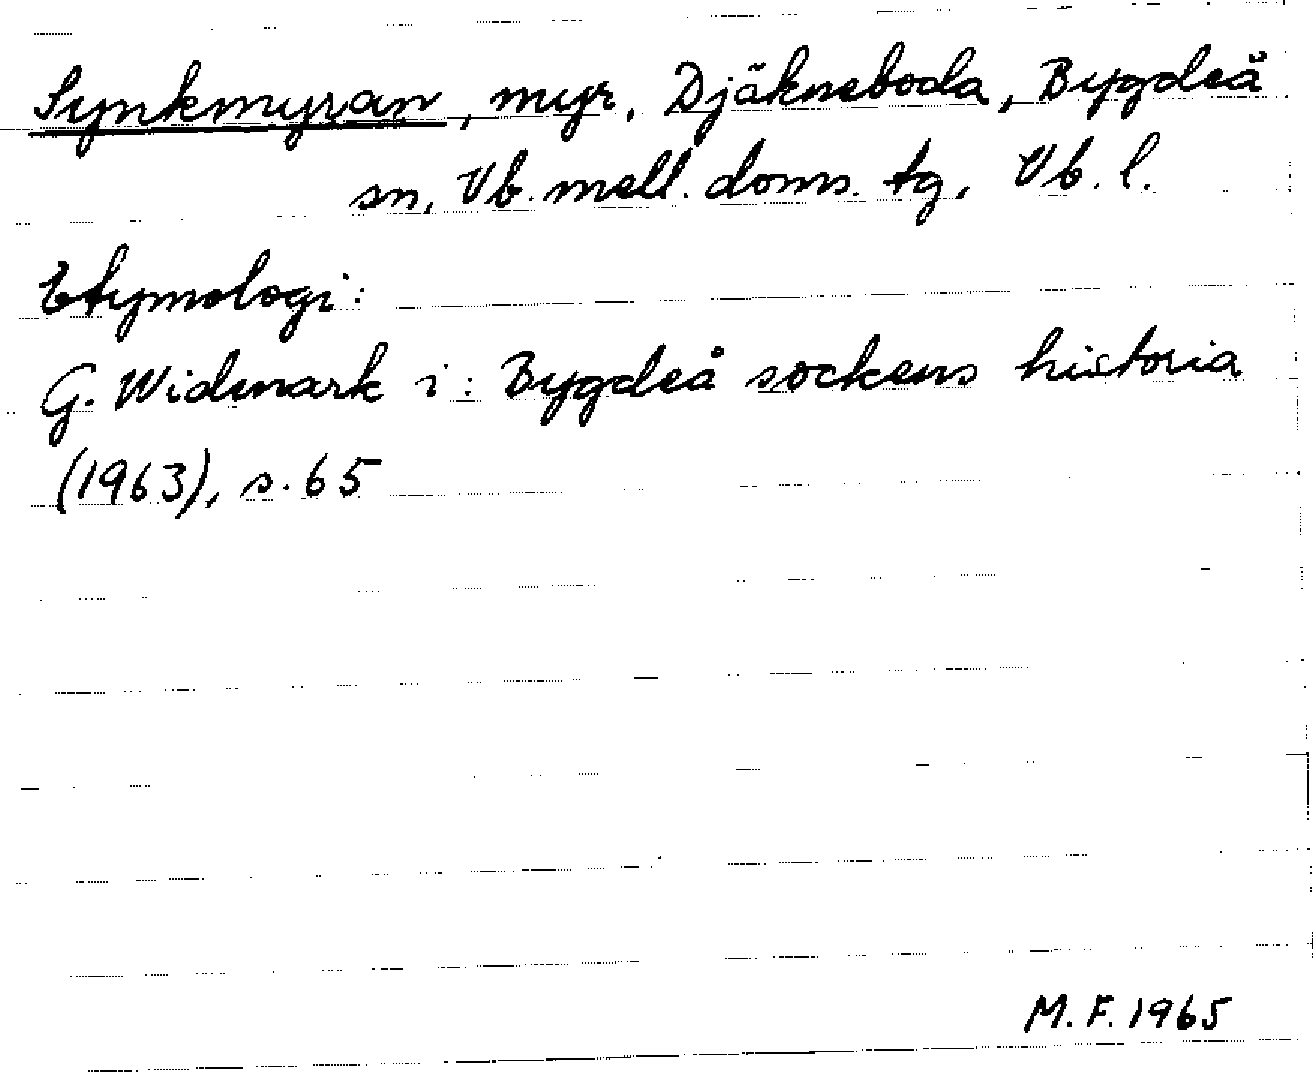 Synkmyran, myr, Djäkneboda, Bygdeå
sn, Vb. mell. doms. tg, Vb. l.
Etymologi:
G. Widmark i: Bygdeå sockens historia
(1963), s. 65
M. F. 1965